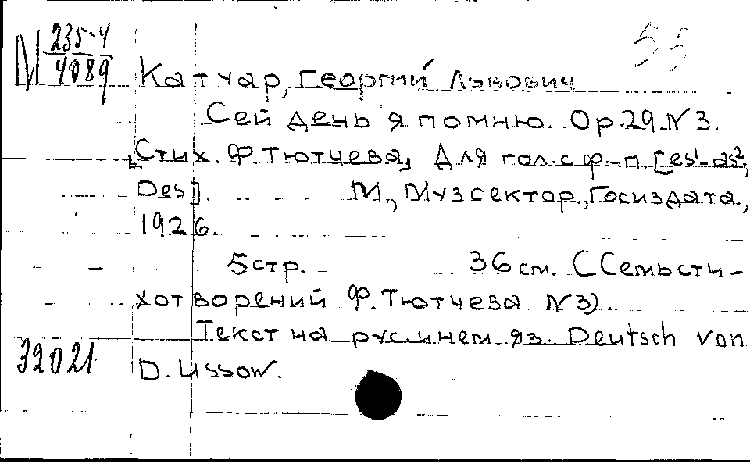 М 235-4
4089
55
Катуар, Георгий Львович
Сей день я помню. Op.29.N3.
[Стих. Ф.Тютчева, Для гол.с ф-п [es¹-as²,
Des].  М., Музсектор Госиздата,
1926.
5стр.  36см. (Семь сти-
хотворений Ф.Тютчева N3)
Текст на рус.и нем.яз. Deutsch von
32021
D. Ussow.